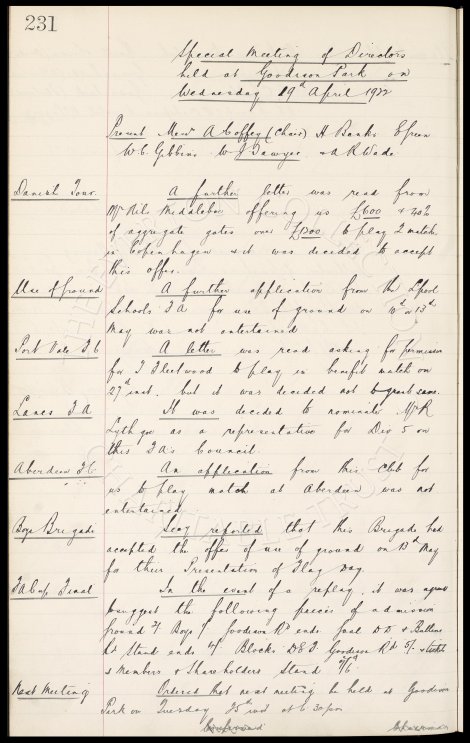 231
Special Meeting of Directors
held at Goodison Park on
Wednesday 19th April 1922
Present Messrs A Coffey (Chair) H Banks E Green
W.C. Gibbins W J Sawyer & A R Wade
Danish Tour. A further letter was read from
Mr Nils Middelboe offering us £600 & 40%
of aggregate gates over £1200 to play 2 match.
in Copenhagen & it was decided to accept
this offer.
Use of Ground A further application from the Lpool
Schools F.A for use of ground on 10th or 13th
May was not entertained
Port Vale F.C A letter was read asking for permission
for T Fleetwood to play in benefit match on
27th inst. but it was decided not to grant same.
Lancs F.A It was decided to nominate Mr R
Lythgoe as a representative for Div 5 on
this F.A's Council.
Aberdeen F.C. An application from this Club for
us to play match at Aberdeen was not
entertained
Boys Brigade Secy reported that this Brigade had
accepted the offer of use of ground on 13th May
for their Presentation of Flag Day
F.A Cup Final In the event of a replay it was agreed
suggest the following prices of admission
Ground 2/- Boys 1/- Goodison Rd ends Goal D.D & Bullens
Rd Stand ends 4/- Blocks D E F. Goodison Rd 5/-
& Members & Shareholders Stand
Next Meeting Ordered that next meeting be held at Goodison
Park on Tuesday 25th inst at 6.30pm
Confirmed Chairman